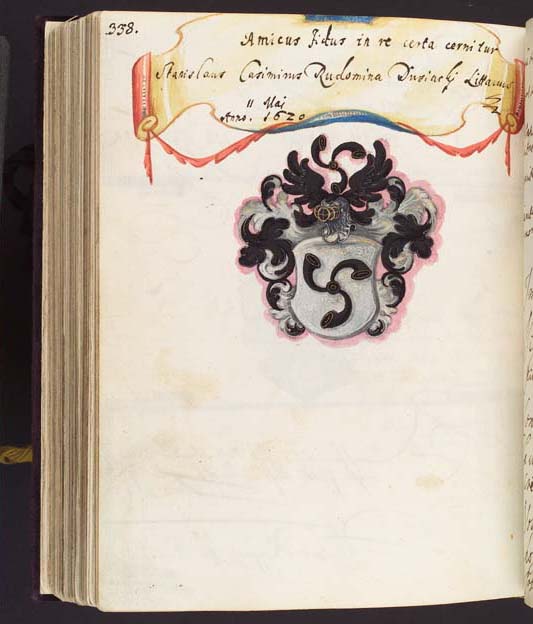 338.
Amicus fidus in re certa cernitur
Stanislaus Casimirus Rudomina Dusincky Littavus
11 Maj
Anno. 1620